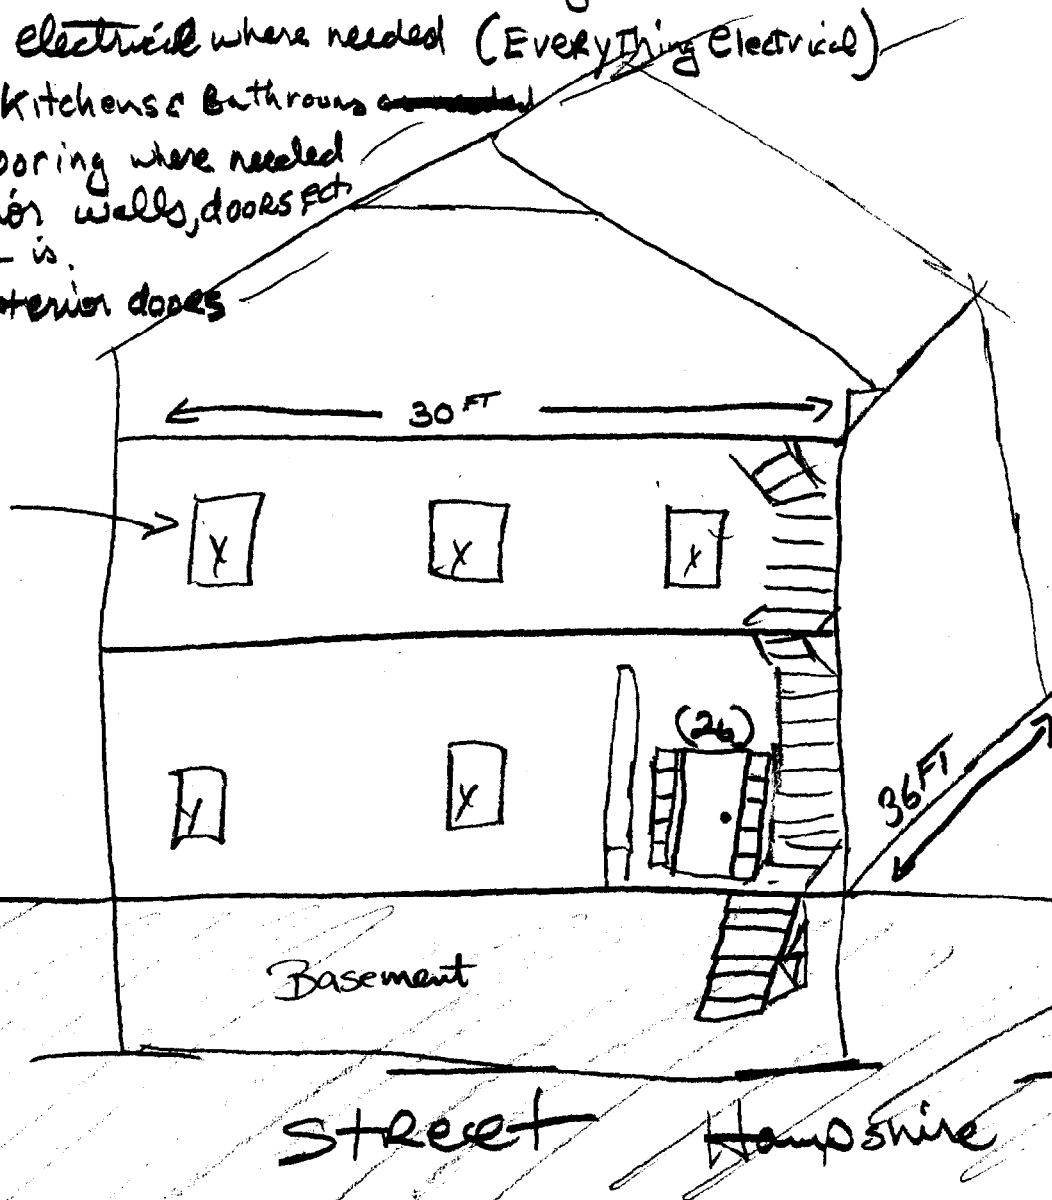 electrical where needed (EveryThing Electrical)
Kitchens & Bathrooms
ooring where needed
ior walls, doors Ect
is.
terior doors
30 FT
X X X
(26)
X
36 FT
Basement
Street Hampshire